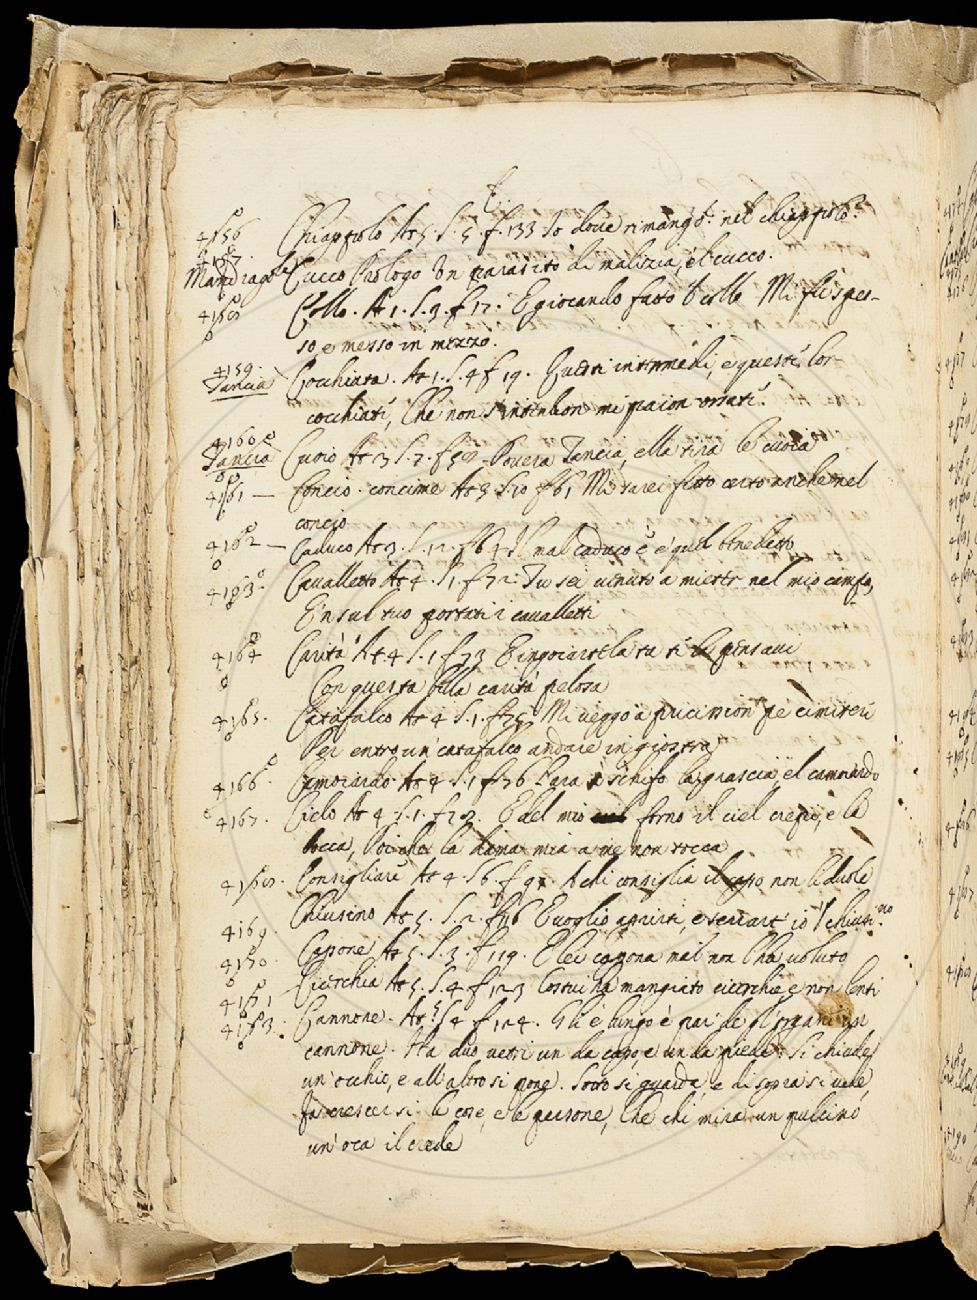 C
4156 Chiappolo At 5. S. 5. f. 133 Io dove rimango? nel chiappolo?
4157
Mandragola Cucco Prologo Un parasito di malizia, è 'l cucco.
4158 Collo. At 1. S. 3. f 17. E giocando fusto collo Mi fu spes-
so e messo in mezzo.
4159
Tancia Cocchiata. At 1. S. 4 f 19. Quatri intermedi, e questi lor
cocchiati, Che non s'intendon mi paion
4160
Tancia Cuoio At 3 S. 7. f 58 Povera Tancia, ella tira le cuoia
4161 — Concio. concime At 3 S. 10 f 61 Mi sarei fitto certo anche nel
concio
4162 — Caduco At 3. S. 12. f 64 Il mal caduco è e quel benedetto
4163. Cavalletto At 4. S. 1. f 72. Tu sei venuto a mieter nel mio campo,
E 'n sul tuo portati i cavalletti
4164 Carità At 4 S. 1 f 73 E ingoiartela tu ti pensavi
Con questa bella carità pelosa
4165. Catafalco At 4 S. 1. f 75. Mi veggo a pricission pe cimiteri
Per entro un catafalco andare in giostra
4166 Camoiardo At 4 S. 1 f 76 Para schifo la grascia e 'l camoiardo
4167. Cielo At 4. S. 1. f 78. E del mio forno il ciel crepi, e la
bocca, Poiche la dama mia a me non tocca
4168. Consigliare At 4. S. 6. f 97. A chi consiglia il capo non li duole
4169. Chiusino At 5. S. 2. f 116 E voglio aprirti, e serrart' io 'l chiusino
4170. Capone At 5. S. 3. f 119. E lei capona mal non l'ha voluto
4171 Cicerchia At 5. S. 4. f 123 Costui ha mangiato cicerchie e non lenti
4173. Cannone. At 5 S 4 f 124. Gli è lungo è par de gl'organi un
cannone. Ha duo vetri un da capo, e un da piede. Si chiude
un'occhio, e all'altro si pone. Sotto si guarda, e di sopra si vede
Fa crescersi le cose, e le persone, Che chi mira un pulcino
un'oca il crede